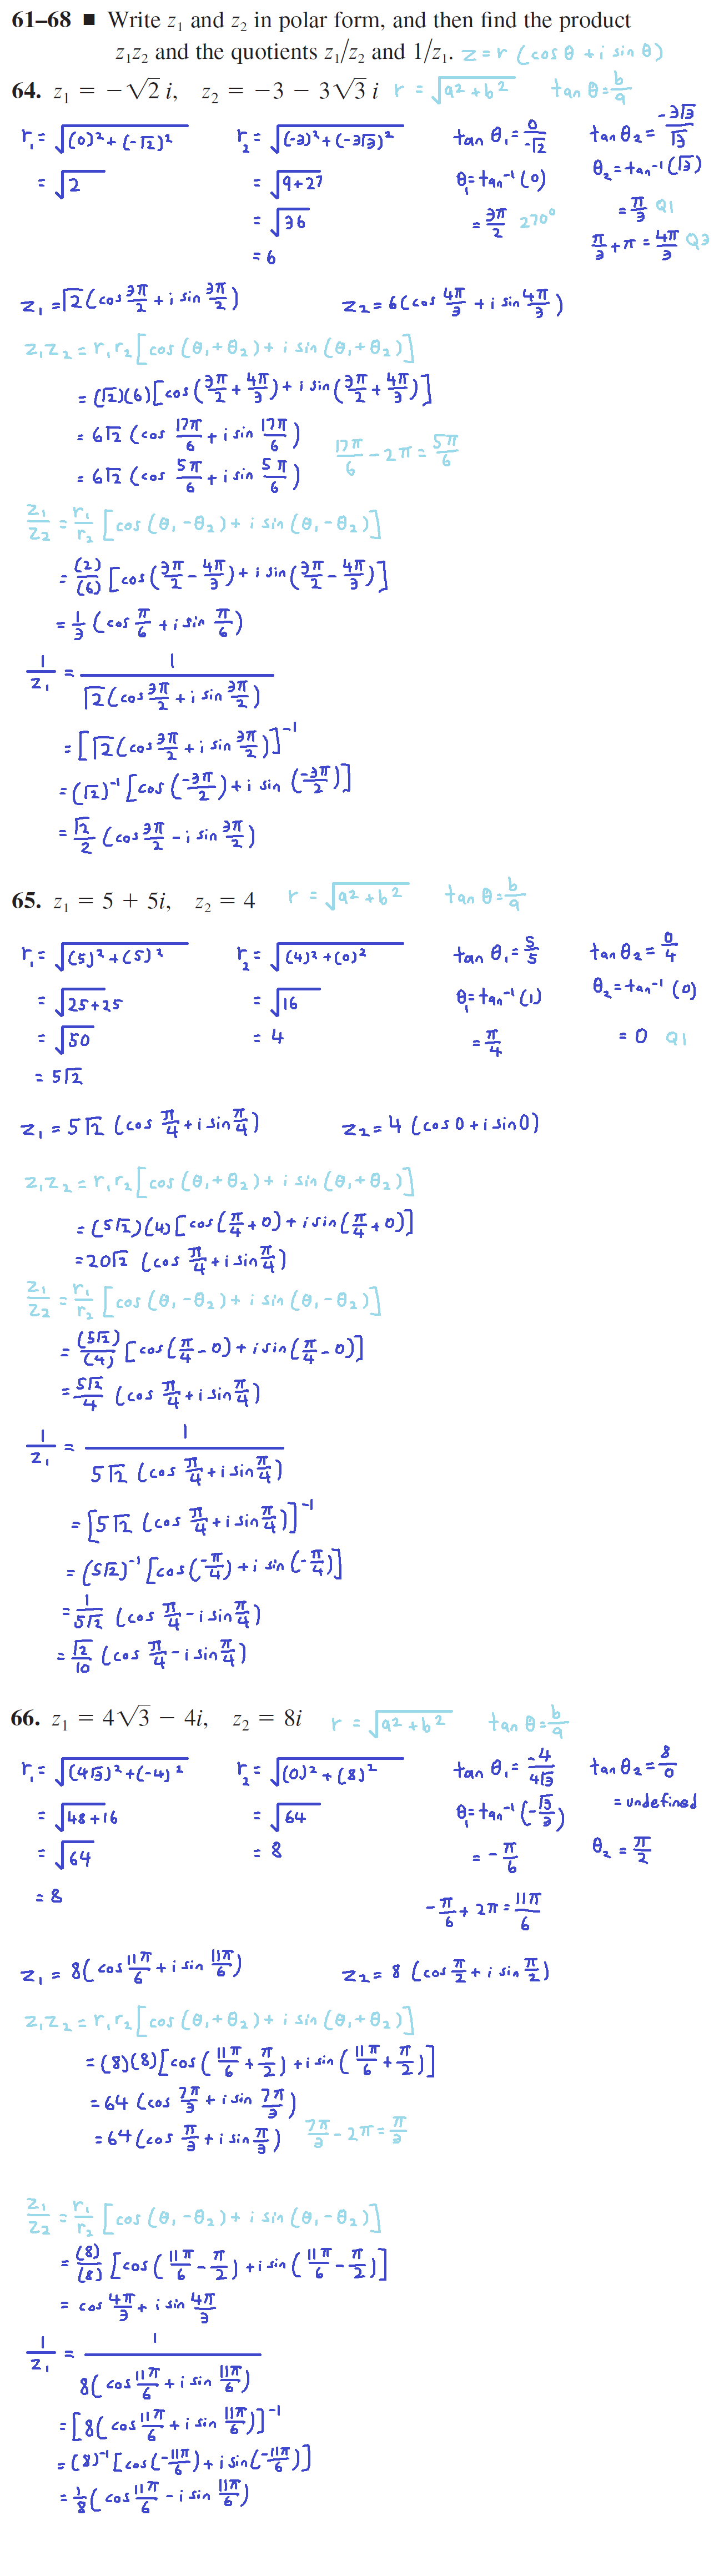 61–68 ■ Write z₁ and z₂ in polar form, and then find the product
z₁z₂ and the quotients z₁/z₂ and 1/z₁. z = r (cos θ + i sin θ)
64. z₁ = −√2 i, z₂ = −3 − 3√3 i r = √(a² + b²) tan θ = b/a
r₁ = √((0)² + (-√2)²) r₂ = √((-3)² + (-3√3)²) tan θ₁ = 0/-√2 tan θ₂ = -3√3/√3
= √2 = √(9+27) θ₁ = tan⁻¹ (0) θ₂ = tan⁻¹ (√3)
= √36 = 3π/2 270° = π/3 Q1
= 6 π/3 + π = 4π/3 Q3
z₁ = √2 (cos 3π/2 + i sin 3π/2) z₂ = 6 (cos 4π/3 + i sin 4π/3)
z₁z₂ = r₁r₂ [cos (θ₁ + θ₂) + i sin (θ₁ + θ₂)]
= (√2)(6) [cos (3π/2 + 4π/3) + i sin (3π/2 + 4π/3)]
= 6√2 (cos 17π/6 + i sin 17π/6) 17π/6 - 2π = 5π/6
= 6√2 (cos 5π/6 + i sin 5π/6)
z₁/z₂ = r₁/r₂ [cos (θ₁ - θ₂) + i sin (θ₁ - θ₂)]
= (2)/(6) [cos (3π/2 - 4π/3) + i sin (3π/2 - 4π/3)]
= 1/3 (cos π/6 + i sin π/6)
1/z₁ = 1/(√2 (cos 3π/2 + i sin 3π/2))
= [√2 (cos 3π/2 + i sin 3π/2)]⁻¹
= (√2)⁻¹ [cos (-3π/2) + i sin (-3π/2)]
= √2/2 (cos 3π/2 - i sin 3π/2)
65. z₁ = 5 + 5i, z₂ = 4 r = √(a² + b²) tan θ = b/a
r₁ = √((5)² + (5)²) r₂ = √((4)² + (0)²) tan θ₁ = 5/5 tan θ₂ = 0/4
= √(25+25) = √16 θ₁ = tan⁻¹ (1) θ₂ = tan⁻¹ (0)
= √50 = 4 = π/4 = 0 Q1
= 5√2
z₁ = 5√2 (cos π/4 + i sin π/4) z₂ = 4 (cos 0 + i sin 0)
z₁z₂ = r₁r₂ [cos (θ₁ + θ₂) + i sin (θ₁ + θ₂)]
= (5√2)(4) [cos (π/4 + 0) + i sin (π/4 + 0)]
= 20√2 (cos π/4 + i sin π/4)
z₁/z₂ = r₁/r₂ [cos (θ₁ - θ₂) + i sin (θ₁ - θ₂)]
= (5√2)/(4) [cos (π/4 - 0) + i sin (π/4 - 0)]
= 5√2/4 (cos π/4 + i sin π/4)
1/z₁ = 1/(5√2 (cos π/4 + i sin π/4))
= [5√2 (cos π/4 + i sin π/4)]⁻¹
= (5√2)⁻¹ [cos (-π/4) + i sin (-π/4)]
= 1/5√2 (cos π/4 - i sin π/4)
= √2/10 (cos π/4 - i sin π/4)
66. z₁ = 4√3 − 4i, z₂ = 8i r = √(a² + b²) tan θ = b/a
r₁ = √((4√3)² + (-4)²) r₂ = √((0)² + (8)²) tan θ₁ = -4/4√3 tan θ₂ = 8/0
= √(48+16) = √64 θ₁ = tan⁻¹ (-√3/3) = undefined
= √64 = 8 = -π/6 θ₂ = π/2
= 8 -π/6 + 2π = 11π/6
z₁ = 8 (cos 11π/6 + i sin 11π/6) z₂ = 8 (cos π/2 + i sin π/2)
z₁z₂ = r₁r₂ [cos (θ₁ + θ₂) + i sin (θ₁ + θ₂)]
= (8)(8) [cos (11π/6 + π/2) + i sin (11π/6 + π/2)]
= 64 (cos 7π/3 + i sin 7π/3)
= 64 (cos π/3 + i sin π/3) 7π/3 - 2π = π/3
z₁/z₂ = r₁/r₂ [cos (θ₁ - θ₂) + i sin (θ₁ - θ₂)]
= (8)/(8) [cos (11π/6 - π/2) + i sin (11π/6 - π/2)]
= cos 4π/3 + i sin 4π/3
1/z₁ = 1/(8 (cos 11π/6 + i sin 11π/6))
= [8 (cos 11π/6 + i sin 11π/6)]⁻¹
= (8)⁻¹ [cos (-11π/6) + i sin (-11π/6)]
= 1/8 (cos 11π/6 - i sin 11π/6)